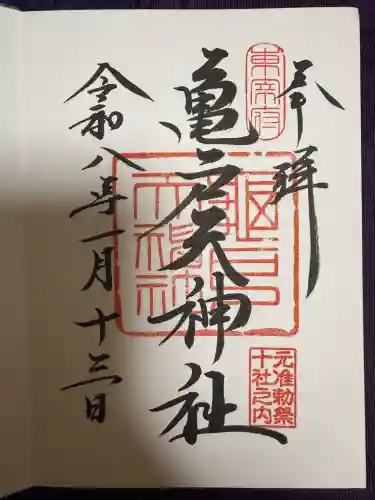 奉拝
東宰府
亀戸天神社
元准勅祭
十社之内
令和八年一月十三日